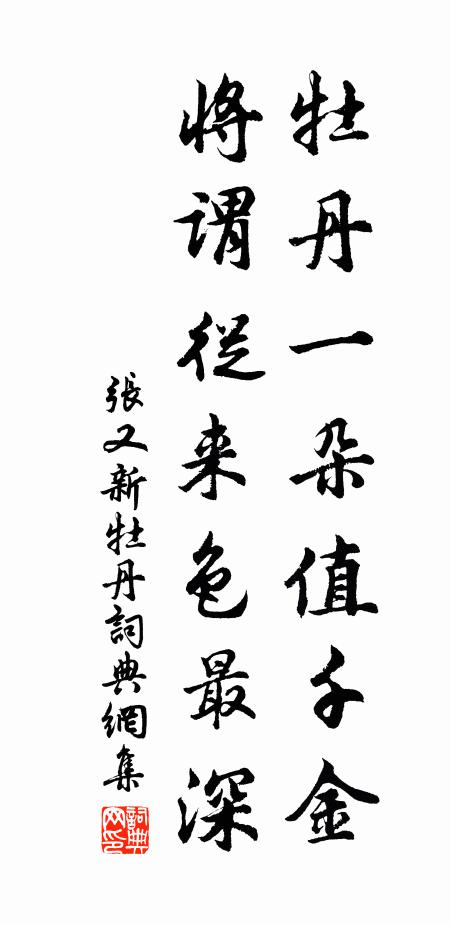 牡丹一朵值千金
將謂從来色最深
張又新牡丹詞典網集
詞典网印